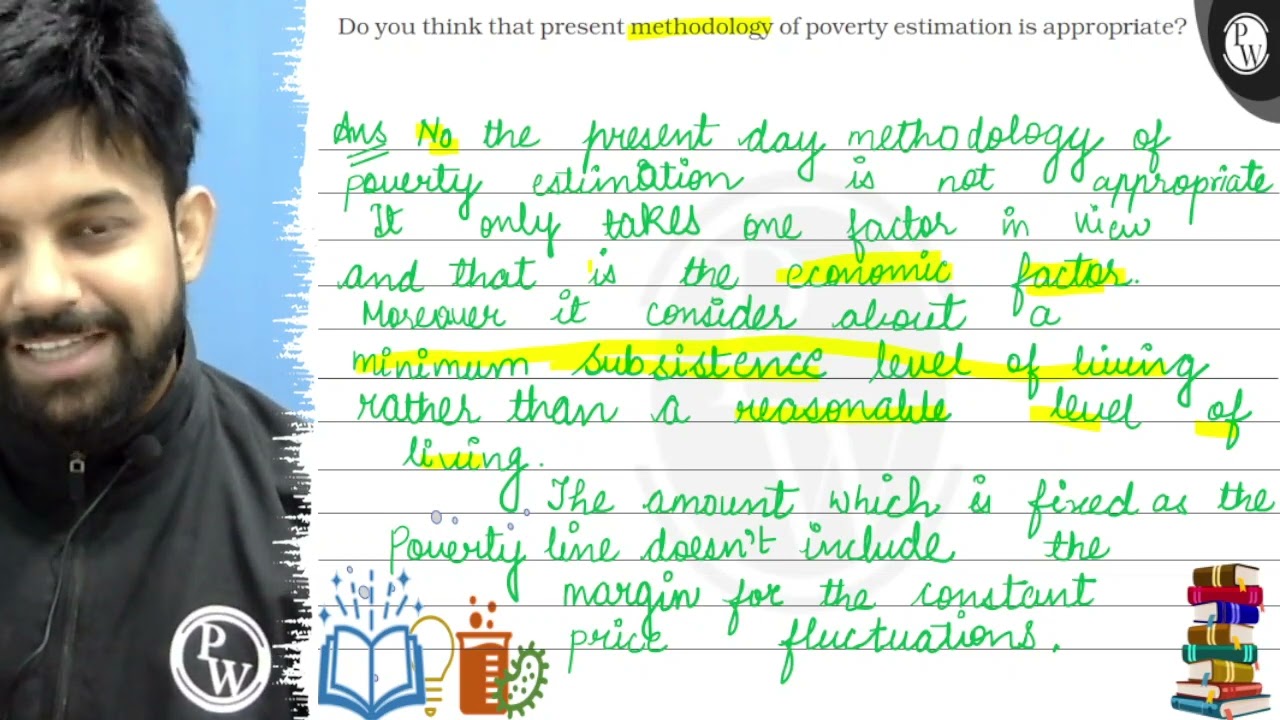 Do you think that present methodology of poverty estimation is appropriate?
PW
Ans No the present day methodology of
poverty estimation is not appropriate
It only takes one factor in view
and that is the economic factor.
Moreover it consider about a
minimum subsistence level of living
rather than a reasonable level of
living.
The amount which is fixed as the
Poverty line doesn't include the
margin for the constant
price fluctuations.
PW
PW